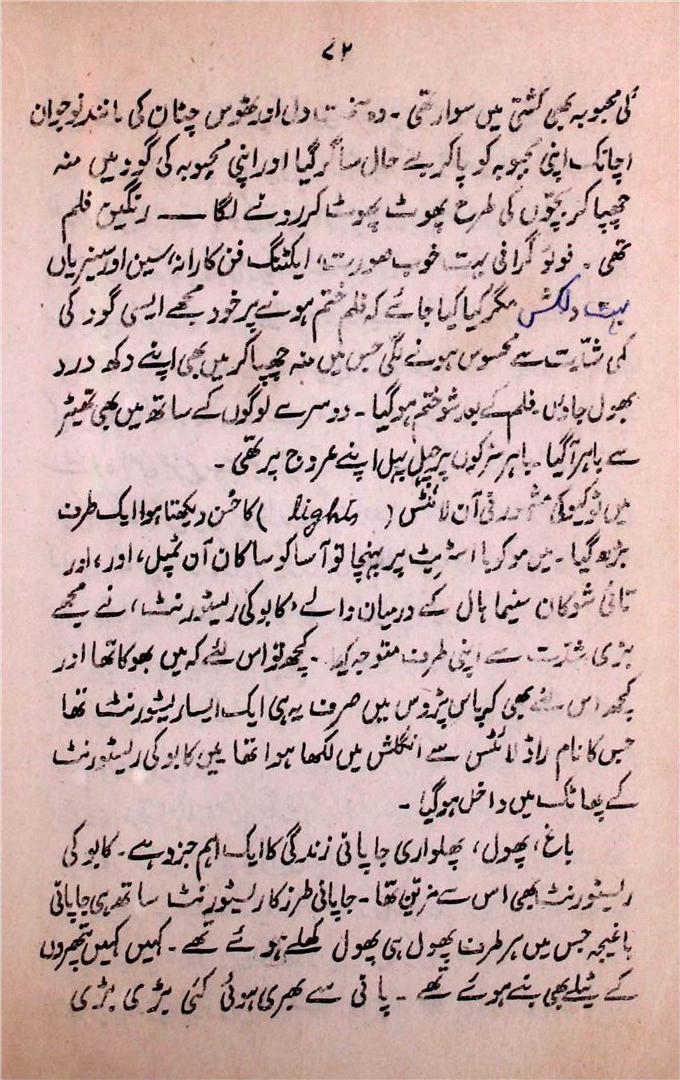 ۷۲
کی محبوبہ بھی کشتی میں سوار تھی ۔ وہ سخت دل اور ٹھوس چٹان کی مانند نوجوان
اچانک اپنی محبوبہ کو پاکر بے حال سا گر گیا اور اپنی محبوبہ کی گود میں منہ
چھپا کر بچوں کی طرح پھوٹ پھوٹ کر رونے لگا ــــ رنگین فلم
تھی ۔ فوٹو گرافی بہت خوب صورت، ایکٹنگ فن کارانہ، سین اور سینریاں
بہت دلکش مگر کیا کیا جائے کہ فلم ختم ہونے پر خود مجھے ایسی گود کی
کمی شدّت سے محسوس ہونے لگی جس میں منہ چھپا کر میں بھی اپنے دکھ درد
بھول جاؤں ۔ فلم کے بعد شو ختم ہو گیا ۔ دوسرے لوگوں کے ساتھ میں بھی تھیٹر
سے باہر آگیا ۔ باہر سڑکوں پر چہل پہل اپنے عروج پر تھی ۔
میں ٹوکیو کی مشہور نی آن لائٹس ( lights ) کا حُسن دیکھتا ہوا ایک طرف
بڑھ گیا ۔ میں موکریا اسٹریٹ پر پہنچا تو آساکوسا کان آن ٹمپل، اور، اور
تائی شوکان سنیما ہال کے درمیان والے ’کابوکی ریسٹورنٹ‘ نے مجھے
بڑی شدّت سے اپنی طرف متوجہ کیا ۔ کچھ تو اس لئے کہ میں بھوکا تھا اور
کچھ اس لئے بھی کہ پاس پڑوس میں صرف یہ ہی ایک ایسا ریسٹورنٹ تھا
جس کا نام راڈ لائٹس سے انگلش میں لکھا ہوا تھا میں کابوکی ریسٹورنٹ
کے پھاٹک میں داخل ہو گیا ۔
باغ، پھول، پھلواری جاپانی زندگی کا ایک اہم جزو ہے ۔ کابوکی
ریسٹورنٹ بھی اس سے مزیّن تھا ۔ جاپانی طرز کا ریسٹورنٹ ساتھ ہی جاپانی
باغیچہ جس میں ہر طرف پھول ہی پھول کھلے ہوئے تھے ۔ کہیں کہیں پتھروں
کے ٹیلے بھی بنے ہوئے تھے ۔ پانی سے بھری ہوئی کئی بڑی بڑی